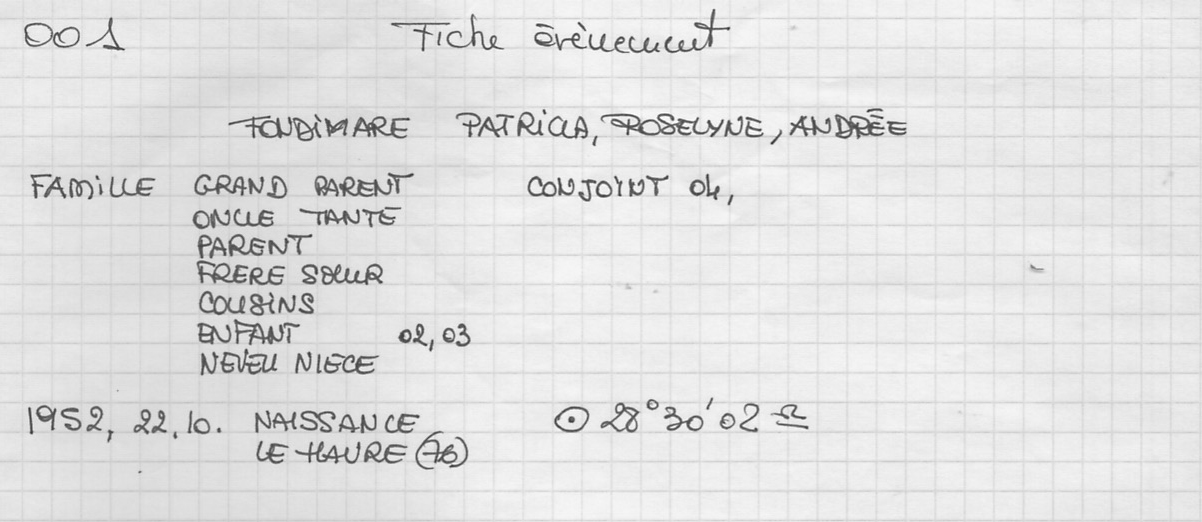 001 Fiche évènement
FONDIMARE PATRICIA, ROSELYNE, ANDRÉE
FAMILLE GRAND PARENT CONJOINT 04,
ONCLE TANTE
PARENT
FRERE SOEUR
COUSINS
ENFANT 02, 03
NEVEU NIECE
1952, 22.10. NAISSANCE ☉ 28°30'02 ♎
LE HAVRE (76)